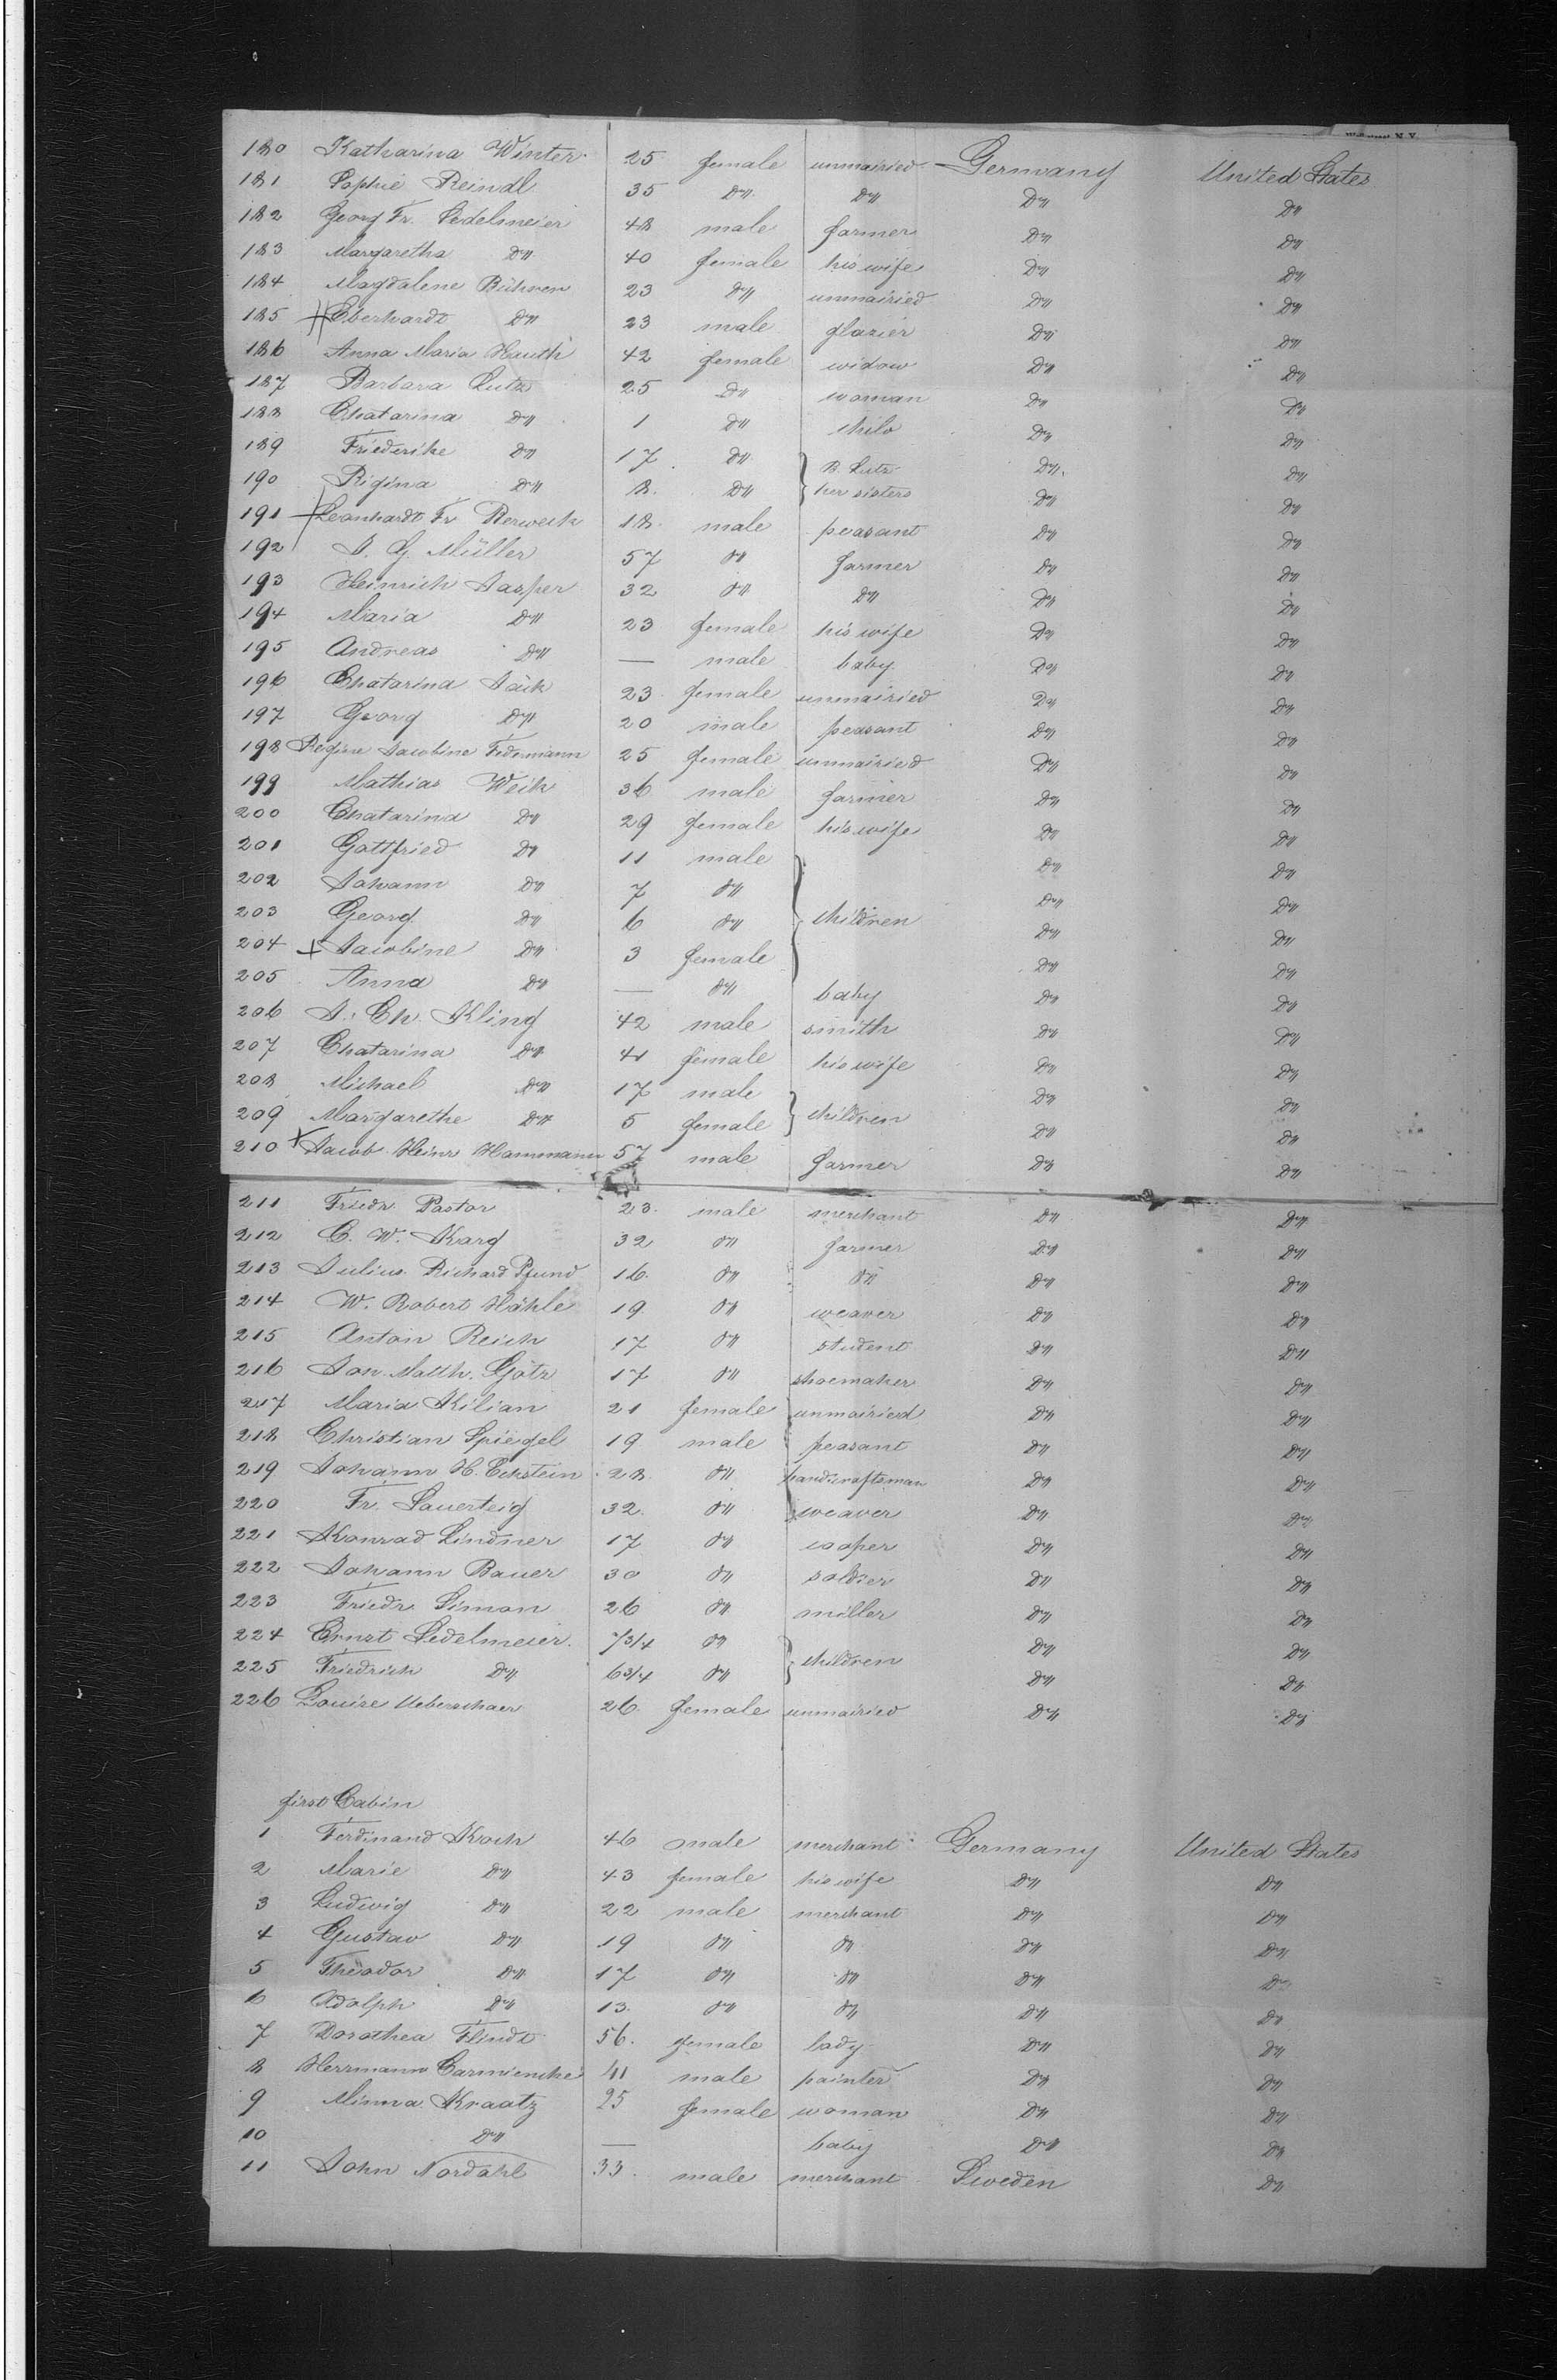 180 Katharina Winter 25 female unmairied Germany United States
181 Sophie Reindl 35 Do Do Do Do
182 Georg Fr. Sedelmeier 48 male farmer Do Do
183 Margaretha Do 40 female his wife Do Do
184 Magdalene Bühren 23 Do unmairied Do Do
185 Eberhardt Do 23 male glazier Do Do
186 Anna Maria Hauth 42 female widow Do Do
187 Barbara Lutz 25 Do woman Do Do
188 Chatarina Do 1 Do child Do Do
189 Friederike Do 17 Do B. Lutz Do Do
190 Rigina Do 8 Do her sisters Do Do
191 Leonhardt Fr 18 male peasant Do Do
192 J. G. Müller 57 Do farmer Do Do
193 Heinrich Jasper 32 Do Do Do Do
194 Maria Do 23 female his wife Do Do
195 Andreas Do — male baby Do Do
196 Chatarina Jäck 23 female unmairied Do Do
197 Georg Do 20 male peasant Do Do
198 Regine Jacobine Federmann 25 female unmairied Do Do
199 Mathias Weik 36 male farmer Do Do
200 Chatarina Do 29 female his wife Do Do
201 Gottfried Do 11 male Do Do
202 Johann Do 7 Do Do Do
203 Georg Do 6 Do children Do Do
204 Jacobine Do 3 female Do Do
205 Anna Do — Do baby Do Do
206 J. Ch. Kling 42 male smith Do Do
207 Chatarina Do 41 female his wife Do Do
208 Michael Do 17 male Do Do
209 Margarethe Do 5 female children Do Do
210 Jacob Heinr Hammann 57 male farmer Do Do
211 Friedr Pastor 23 male merchant Do Do
212 C. W. Karg 32 Do farmer Do Do
213 Julius Richard Pfund 16 Do Do Do Do
214 W. Robert Hähle 19 Do weaver Do Do
215 Anton Reich 17 Do student Do Do
216 Jon. Matth. Götz 17 Do shoemaker Do Do
217 Maria Kilian 21 female unmairied Do Do
218 Christian Spiegel 19 male peasant Do Do
219 Johann H. Eckstein 28 Do handicraftsman Do Do
220 Fr. Sauerteig 32 Do weaver Do Do
221 Konrad Lindner 17 Do cooper Do Do
222 Johann Bauer 30 Do soldier Do Do
223 Friedr. Simon 26 Do miller Do Do
224 Ernst Sedelmeier 7 3/4 Do Do Do
225 Friedrich Do 6 3/4 Do children Do Do
226 Louise Ueberschaer 26 female unmairied Do Do
first Cabin
1 Ferdinand Koch 46 male merchant Germany United States
2 Marie Do 43 female his wife Do Do
3 Ludwig Do 22 male merchant Do Do
4 Gustav Do 19 Do Do Do Do
5 Theodor Do 17 Do Do Do Do
6 Adolph Do 13 Do Do Do Do
7 Dorothea Flindt 56 female lady Do Do
8 Herrmann Carmiencke 41 male painter Do Do
9 Minna Kraatz 25 female woman Do Do
10 Do — baby Do Do
11 John Nordahl 33 male merchant Sweden Do